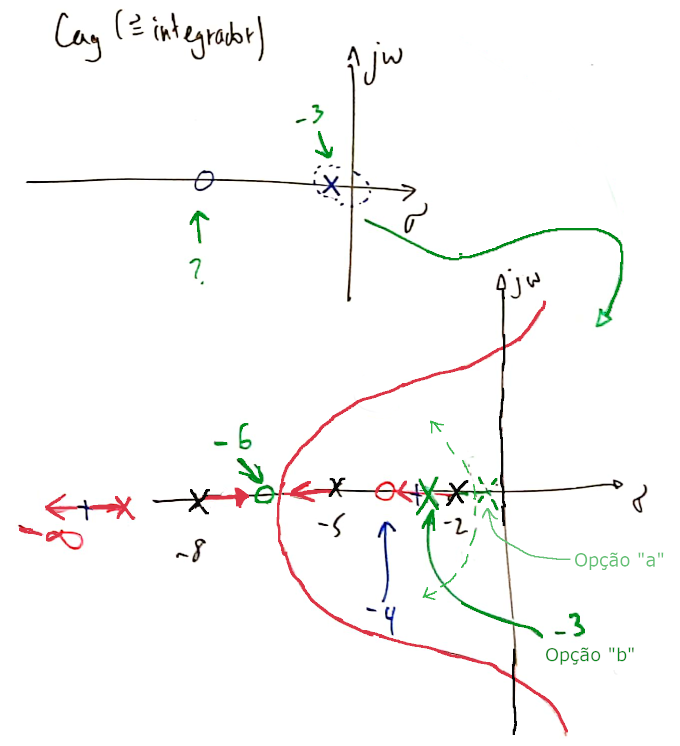 Lag (≅ integrador)
jw
-3
σ
?
jw
-6
σ
-∞
-8
-5
-2
-4
Opção "a"
-3
Opção "b"